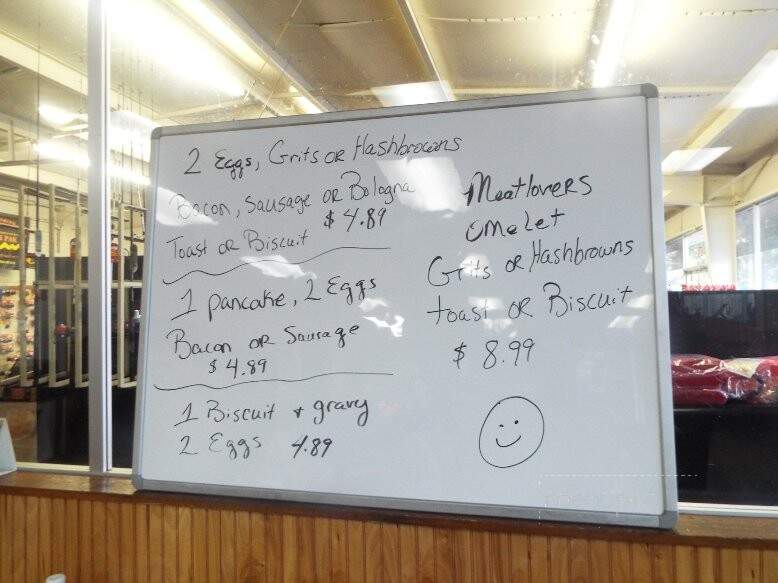 2 Eggs, Grits or Hashbrowns
Bacon, Sausage or Bologna
$4.89
Toast or Biscuit
1 pancake, 2 Eggs
Bacon or Sausage
$4.89
1 Biscuit + gravy
2 Eggs 4.89
Meatlovers
omelet
Grits or Hashbrowns
toast or Biscuit
$8.99